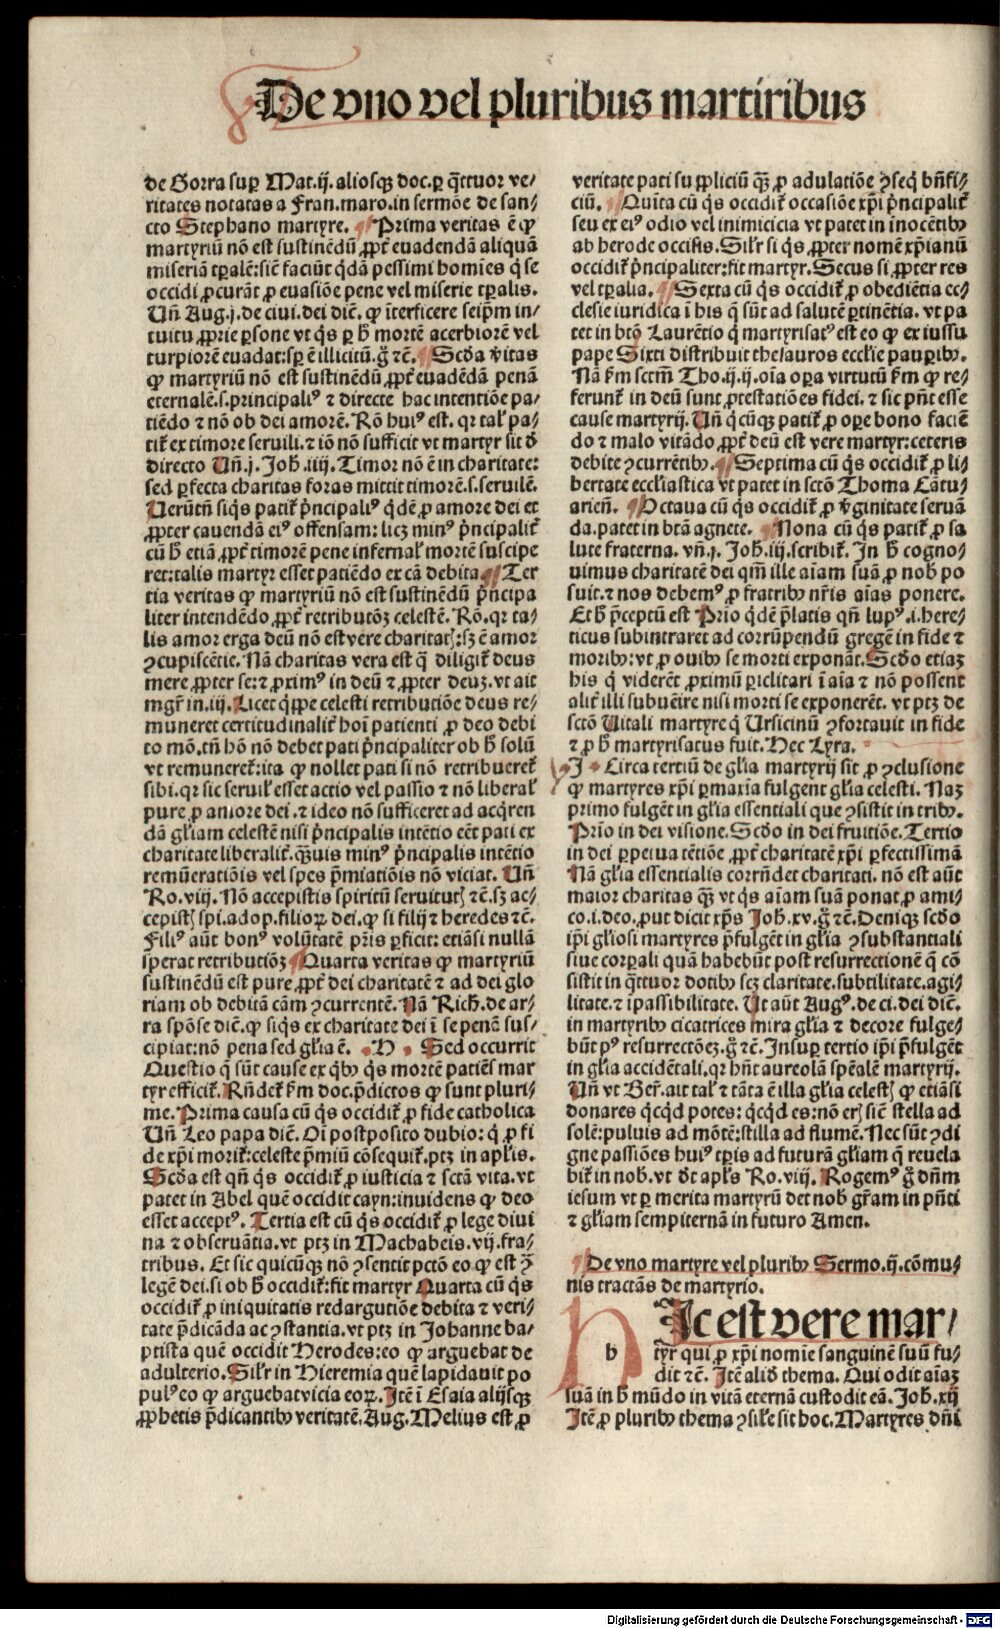 De vno vel pluribus martiribus
de Gorra suꝑ Mat.ij.aliosqꝫ doc.ꝑ q̄ttuor ve/
ritates notatas a Fran.maro.in sermōe de san/
cto Stephano martyre. ¶ Prima veritas ē ꝙ
martyriū nō est sustinēdū ꝓpt̄ euadendā aliquā
miseriā tꝑalē:sic̄ faciūt q̄dā pessimi homīes q̇ se
occidi ꝓcurāt ꝓ euasiōe pene vel miserie tꝑalis.
Vn̄ Aug.j.de ciui.dei dic̄. ꝙ īterficere seip̄m in/
tuitu ꝓprie ꝑsone vt q̇s ꝑ hͦ mortē acerbiorē vel
turpiorē euadat:sꝑ ē illicitū.g̊ ⁊c̄. ¶ Scd̓a v̓itas
ꝙ martyriū nō est sustinēdū ꝓpt̄ euadēdā penā
eternalē.s.principaliꝰ ⁊ directe hac intentiōe pa/
tiēdo ⁊ nō ob dei amorē. Rō huiꝰ est. qꝛ tal̓ pa/
tit̄ ex timore seruili.⁊ iō nō sufficit vt martyr sit d̓
directo Vn̄.j. Joh̓.iiij.Timor nō ē in charitate:
sed ꝑfecta charitas foras mittit timorē.s.seruilē.
Verūtn̄ siq̇s patit̄ p̓ncipaliꝰ q̇dē ꝓ amore dei et
ꝓpter cauendā eiꝰ offensam: licꝫ minꝰ p̓ncipalit̄
cū hͦ etiā ꝓpt̄ timorē pene infernal̓ mortē suscipe
ret:talis martyr esset patiēdo ex cā debita ¶ Ter
tia veritas ꝙ martyriū nō est sustinēdū p̓ncipa
liter intendēdo ꝓpt̄ retributōꝫ celestē. Rō.qꝛ ta/
lis amor erga deū nō est vere charitatꝭ:sꝫ ē amor
ꝯcupiscētie. Nā charitas vera est q̄ diligit̄ deus
mere ꝓpter se:⁊ ꝓximꝰ in deū ⁊ ꝓpter deuꝫ.vt ait
mgr̄ in.iij. Licet q̇ppe celesti retributiōe deus re/
muneret certitudinalit̄ hoīꝫ patienti ꝓ deo debi
to mō.tn̄ hō nō debet pati p̓ncipaliter ob hͦ solū
vt remuneret̄:ita ꝙ nollet pati si nō retribueret̄
sibi.qꝛ sic seruil̓ esset actio vel passio ⁊ nō liberal̓
pure ꝓ amore dei.⁊ ideo nō sufficeret ad acq̇ren
dā gl̓iam celestē nisi p̓ncipalis intētio eēt pati ex
charitate liberalit̄.q̄uis minꝰ p̓ncipalis intētio
remūeratiōis vel spes p̄miatiōis nō viciat. Vn̄
Ro.viij. Nō accepistis spiritū seruitutꝭ ⁊c̄.sꝫ ac/
cepistꝭ spi.adop.filioꝝ dei.ꝙ si filij ⁊ heredes ⁊c̄.
Filiꝰ aūt bonꝰ volūtatē pr̄is ꝑficit: etiāsi nullā
sperat retributiōꝫ ¶ Quarta veritas ꝙ martyriū
sustinēdū est pure ꝓpt̄ dei charitatē ⁊ ad dei glo
riam ob debitā cām ꝯcurrentē. Nā Rich.de ar/
ra spōse dic̄.ꝙ siq̇s ex charitate dei ī se penā sus/
cipiat:nō pena sed gl̓ia ē. H Sed occurrit
Questio q̄ sūt cause ex qͥbꝰ q̇s mortē patiēs mar
tyr efficit̄. Rn̄det̄ ẜm doc.p̄dictos ꝙ sunt pluri/
me. Prima causa cū q̇s occidit̄ ꝓ fide catholica
Vn̄ Leo papa dic̄. Oī postposito dubio: q̇ ꝓ fi
de xp̄i morit̄:celeste p̄miū cōsequit̄.ptꝫ in apl̓is.
Scd̓a est qn̄ q̇s occidit̄ ꝓ iusticia ⁊ sctā vita.vt
patet in Abel quē occidit cayn:inuidens ꝙ deo
esset acceptꝰ. Tertia est cū q̇s occidit̄ ꝓ lege diui
na ⁊ obseruātia.vt ptꝫ in Machabeis.vij.fra/
tribus. Et sic quicūqꝫ nō ꝯsentit pctō eo ꝙ est ꝯ̄
legē dei.si ob hͦ occidit̄:fit martyr Quarta cū q̇s
occidit̄ ꝓ iniquitatis redargutiōe debita ⁊ veri/
tate p̄dicāda ac ꝯstantia.vt ptꝫ in Johanne ba/
ptista quē occidit Herodes:eo ꝙ arguebat de
adulterio. Sil̓r in Hieremia quē lapidauit po
pulꝰ eo ꝙ arguebat vicia eoꝝ. Itē ī Esaia alijsqꝫ
ꝓphetis p̄dicantibꝰ veritatē. Aug. Melius est ꝓ
veritate pati suppliciū q̄ꝫ ꝓ adulatiōe ꝯseq̇ bn̄fi/
ciū. ¶ Quīta cū q̇s occidit̄ occasiōe xp̄i p̓ncipalit̄
seu ex eiꝰ odio vel inimicicia vt patet in inocētibꝰ
ab herode occisis. Sil̓r si q̇s ꝓpter nomē xp̄ianū
occidit̄ p̓ncipaliter:fit martyr. Secus si ꝓpter res
vel tꝑalia. ¶ Sexta cū q̇s occidit̄ ꝓ obediētia ec/
clesie iuridica ī his q̄ sūt ad salutē ꝑtinētia. vt pa
tet in btō Laurētio q̇ martyrisatꝰ est eo ꝙ ex iussu
pape Sixti distribuit thesauros ecclie pauꝑibꝰ.
Nā ẜm sctm̄ Tho.ij.ij.oīa oꝑa virtutū ẜm ꝙ re/
ferunt̄ in deū sunt ꝓtestatiōes fidei. ⁊ sic pn̄t esse
cause martyrij. Vn̄ q̇cūqꝫ patit̄ ꝓ oꝑe bono faciē
do ⁊ malo vitādo ꝓpt̄ deū est vere martyr:ceteris
debite ꝯcurrētibꝰ. ¶ Septima cū q̇s occidit̄ ꝓ li/
bertate eccl̓iastica vt patet in sctō Thoma Cātu/
arien̄. ¶ Octaua cū q̇s occidit̄ ꝓ v̓ginitate seruā
da.patet in btā agnete. ¶ Nona cū q̇s patit̄ ꝓ sa
lute fraterna. vn̄.j. Joh̓.iij.scribit̄. In hͦ cogno/
uimus charitatē dei qm̄ ille aīam suā ꝓ nob̓ po
suit.⁊ nos debemꝰ ꝓ fratribꝰ nr̄is aīas ponere.
Et hͦ p̄ceptū est Prīo q̇dē p̄latis qn̄ lupꝰ.i.here/
ticus subintraret ad corrūpendū gregē in fide ⁊
moribꝰ:vt ꝓ ouibꝰ se morti exponāt. Scd̓o etiaꝫ
his q̇ viderēt ꝓximū ꝑiclitari ī aīa ⁊ nō possent
alit̄ illi subuēire nisi morti se exponerēt. vt ptꝫ de
sctō Uitali martyre q̇ Ursicinū ꝯfortauit in fide
⁊ ꝓ hͦ martyrisatus fuit. Hec Lyra.
J Circa tertiū de gl̓ia martyrij sit ꝓ ꝯclusione
ꝙ martyres xp̄i ꝑmaxīa fulgent gl̓ia celesti. Naꝫ
primo fulgēt in gl̓ia essentiali que ꝯsistit in tribꝰ.
Prīo in dei visione. Scd̓o in dei fruitiōe. Tertio
in dei ꝑpetua tētiōe ꝓpt̄ charitatē xp̄i ꝑfectissimā
Nā gl̓ia essentialis corrn̄det charitati. nō est aūt
maior charitas q̄ꝫ vt q̇s aīam suā ponat ꝓ ami/
co.i.deo.ꝓut dicit xp̄s Joh̓.xv.g̊ ⁊c̄. Deniqꝫ scd̓o
ip̄i gl̓iosi martyres p̄fulgēt in gl̓ia ꝯsubstantiali
siue corꝑali quā habebūt post resurrectionē q̄ cō
sistit in q̄ttuor dotibꝰ scꝫ claritate.subtilitate.agi/
litate.⁊ īpassibilitate. Ut aūt Augꝰ.de ci.dei dic̄.
in martyribꝰ cicatrices mira gl̓ia ⁊ decore fulge/
būt pꝰ resurrectōeꝫ.g̊ ⁊c̄. Insuꝑ tertio ip̄i p̄fulgēt
in gl̓ia accidētali.qꝛ hn̄t aureolā spēalē martyrij.
Vn̄ vt Ber̄.ait tal̓ ⁊ tāta ē illa gl̓ia celestꝭ ꝙ etiāsi
donares q̇cqͥd potes: q̇cqͥd es:nō erꝭ sic̄ stella ad
solē:puluis ad mōtē:stilla ad flumē. Nec sūt ꝯdi
gne passiōes huiꝰ tꝑis ad futurā gl̓iam q̄ reuela
bit̄ in nob̓.vt d̓t apl̓s Ro.viij. Rogemꝰ g̊ dn̄m
iesum vt ꝑ merita martyrū det nob̓ gr̄am in pn̄ti
⁊ gl̓iam sempiternā in futuro Amen.
¶ De vno martyre vel pluribꝰ Sermo.ij.cōmu/
nis tractās de martyrio.
HIc est vere mar/
tyr qui ꝓ xp̄i nomīe sanguinē suū fu/
dit ⁊c̄. Itē aliꝰ thema. Qui odit aīaꝫ
suā in hͦ mūdo in vitā eternā custodit eā. Joh̓.xij
Itē ꝓ pluribꝰ thema ꝯsil̓e sit hoc. Martyres dn̄i
Digitalisierung gefördert durch die Deutsche Forschungsgemeinschaft - DFG